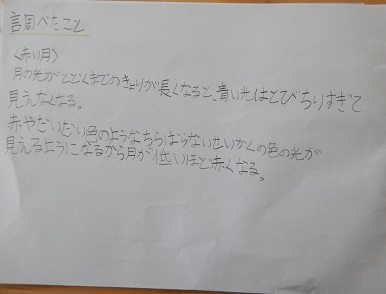 調べたこと
〈赤い月〉
月の光がとどくまでのきょりが長くなると、青い光はとびちりすぎて
見えなくなる。
赤やだいだい色のようなちらばらないせいかくの色の光が
見えるようになるから月が低いほど赤くなる。